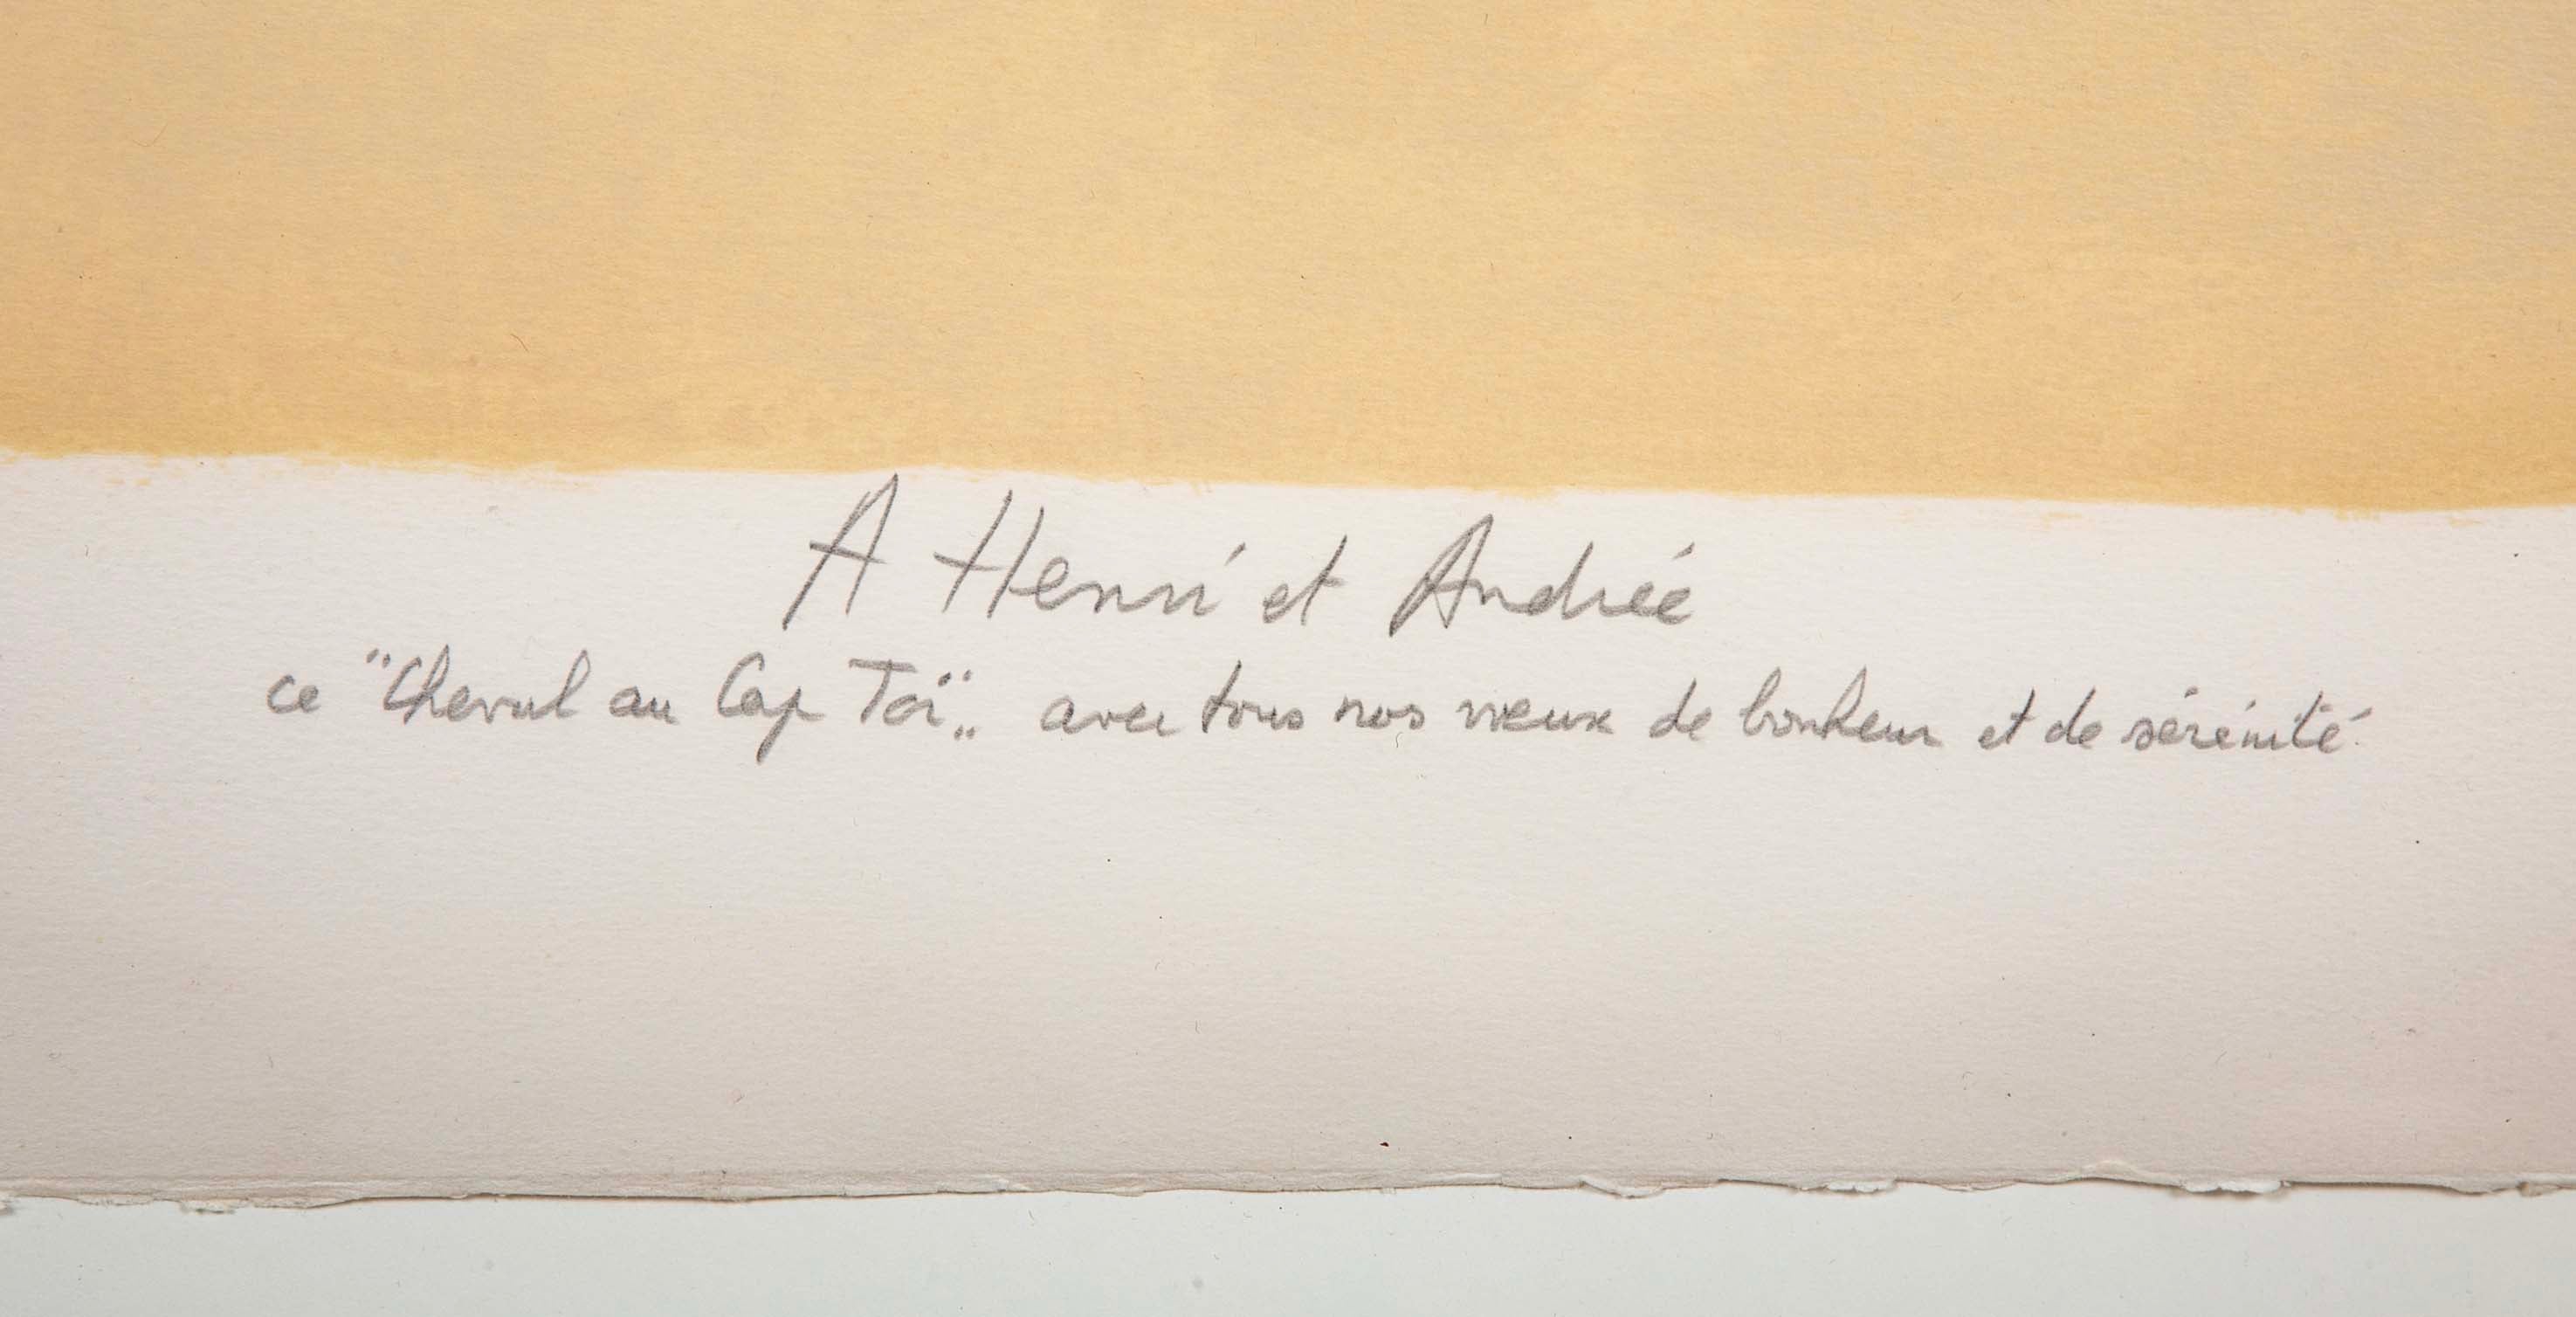 A Henri et Andrée
ce "Cheval au Cap Taï" avec tous nos vœux de bonheur et de sérénité.